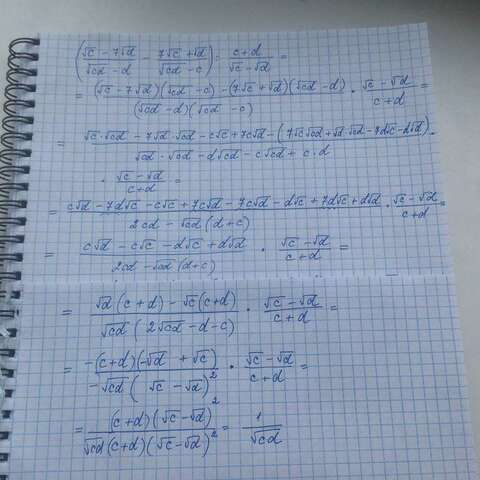 (√c − 7√d / √cd − d − 7√c + √d / √cd − c) : c + d / √c − √d =
= (√c − 7√d)(√cd − c) − (7√c + √d)(√cd − d) / (√cd − d)(√cd − c) · √c − √d / c + d =
= √c·√cd − 7√d·√cd − c√c + 7c√d − (7√c√cd + √d·√cd − 7d√c − d√d) / √cd·√cd − d√cd − c√cd + c·d ·
· √c − √d / c + d =
= c√d − 7d√c − c√c + 7c√d − 7c√d − d√c + 7d√c + d√d / 2cd − √cd (d + c) · √c − √d / c + d =
= c√d − c√c − d√c + d√d / 2cd − √cd (d + c) · √c − √d / c + d =
= √d (c + d) − √c (c + d) / √cd (2√cd − d − c) · √c − √d / c + d =
= −(c + d)(−√d + √c) / −√cd (√c − √d)² · √c − √d / c + d =
= (c + d)(√c − √d)² / √cd (c + d)(√c − √d)² = 1 / √cd